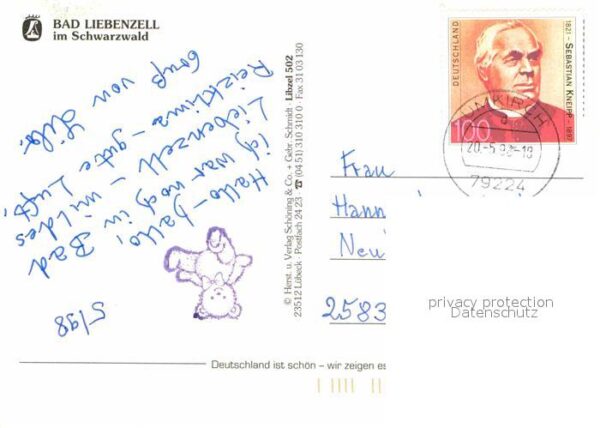 BAD LIEBENZELL
im Schwarzwald
Hallo - hallo,
ich war noch in Bad
Liebenzell - mildes
Reizklima - gute Luft,
Gruß von
5/98
© Herst. u. Verlag Schöning & Co. + Gebr. Schmidt · Libzel 502
23512 Lübeck · Postfach 24 23 · ☎ (04 51) 310 310 0 · Fax 31 03 130
DEUTSCHLAND
1821 - SEBASTIAN KNEIPP - 1897
100
UMKIRCH
20.-5.98-18
79224
Frau
Hann
Neu
2583
privacy protection
Datenschutz
Deutschland ist schön – wir zeigen es